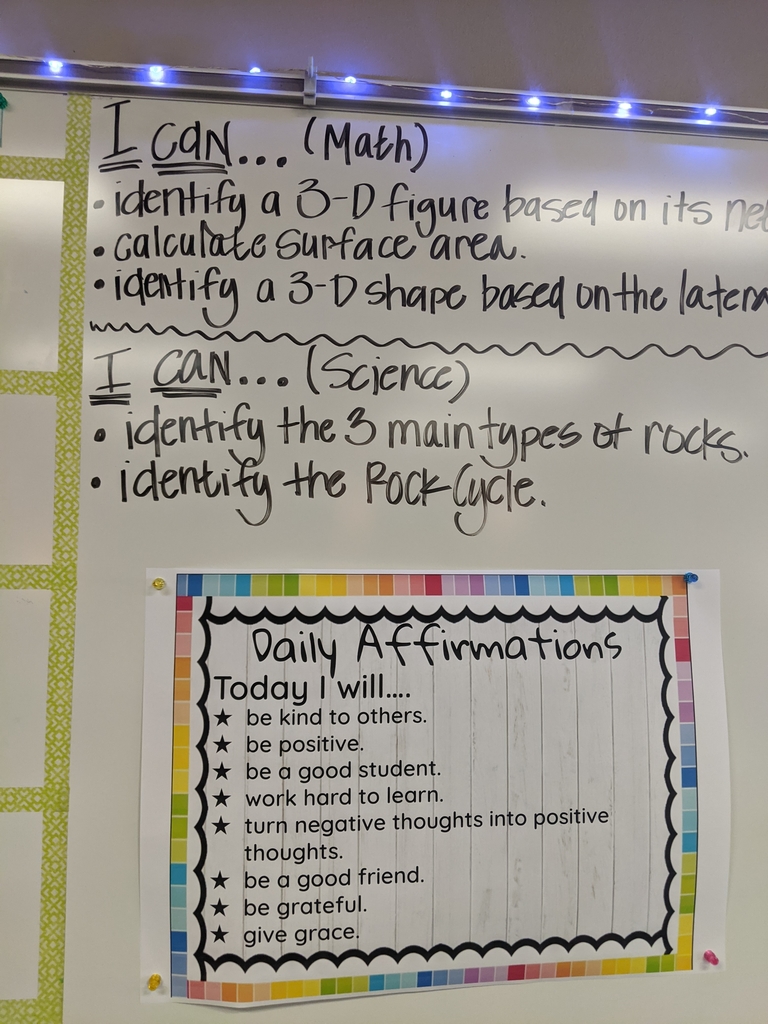 I can... (Math)
• identify a 3-D figure based on its
• calculate surface area.
• identify a 3-D shape based on the
I can... (Science)
• identify the 3 main types of rocks.
• identify the Rock Cycle.
Daily Affirmations
Today I will....
★ be kind to others.
★ be positive.
★ be a good student.
★ work hard to learn.
★ turn negative thoughts into positive
thoughts.
★ be a good friend.
★ be grateful.
★ give grace.